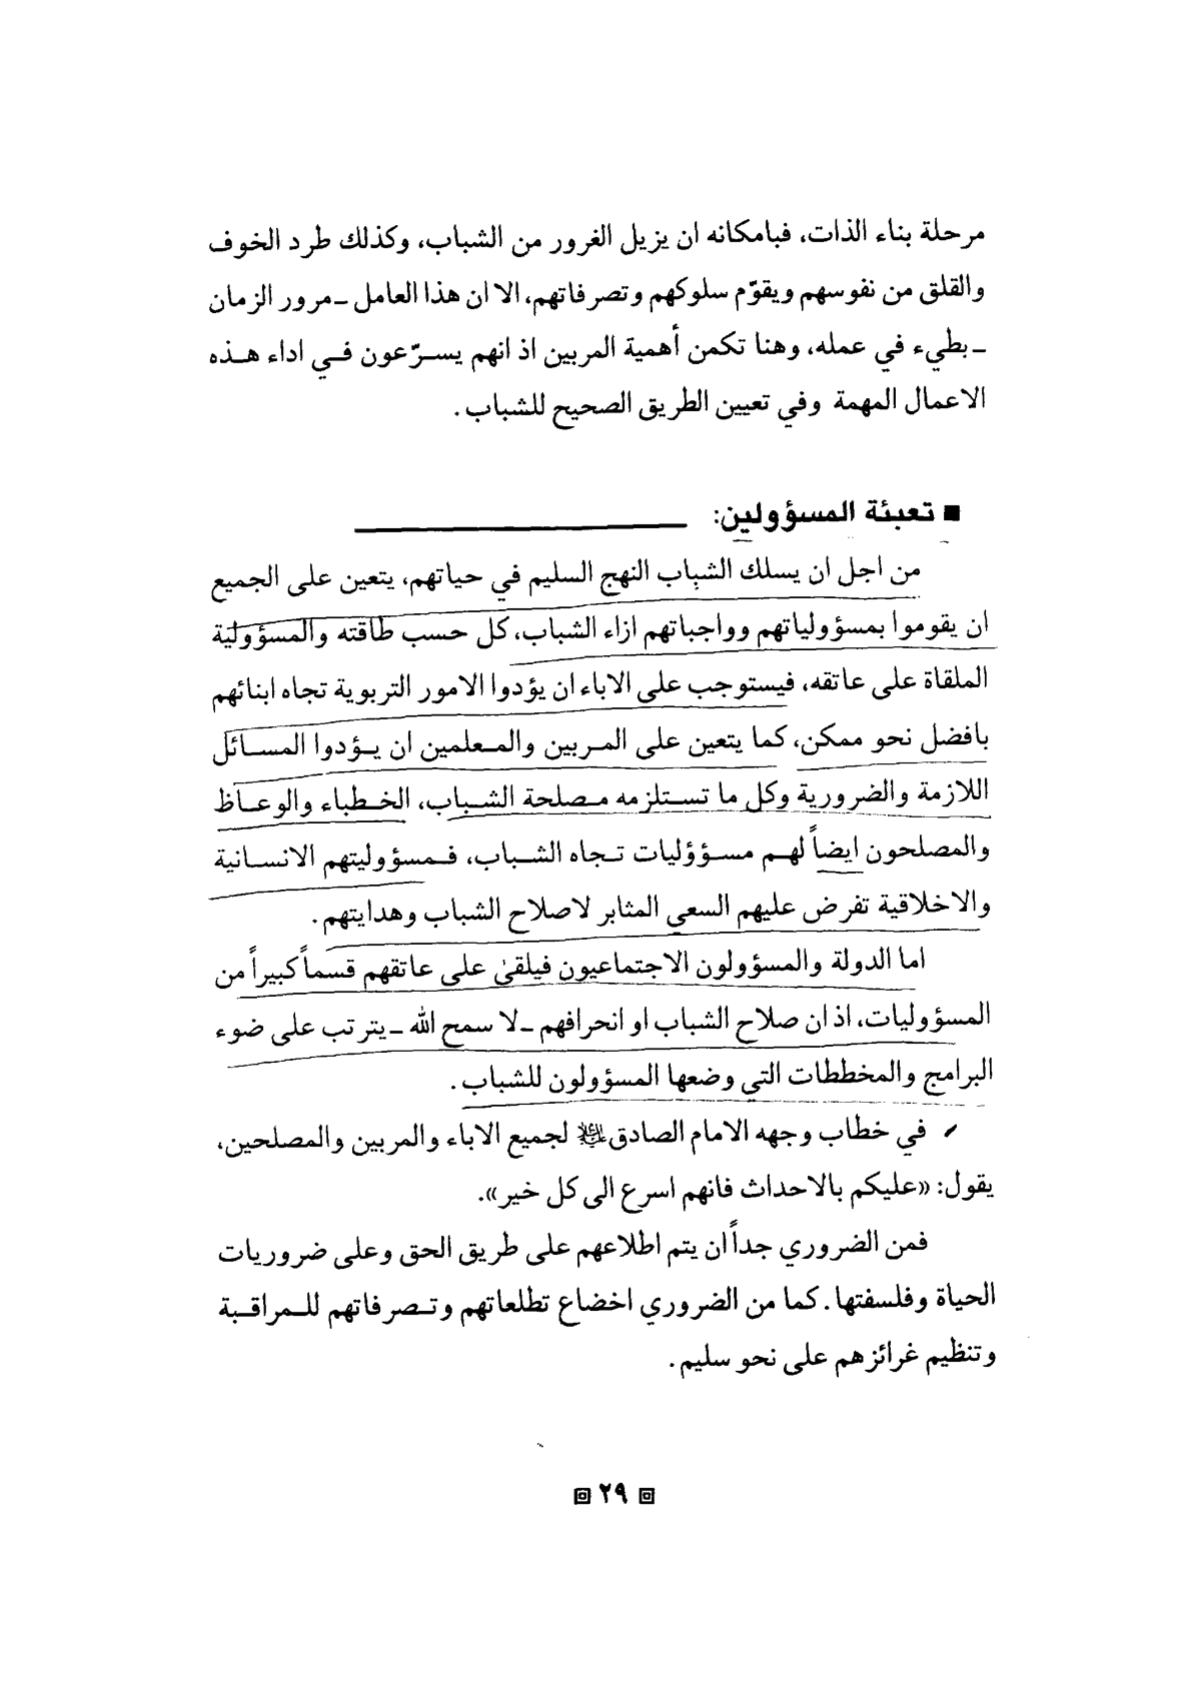 مرحلة بناء الذات، فبامكانه ان يزيل الغرور من الشباب، وكذلك طرد الخوف
والقلق من نفوسهم ويقوّم سلوكهم وتصرفاتهم، الا ان هذا العامل ـ مرور الزمان
ـ بطيء في عمله، وهنا تكمن أهمية المربين اذ انهم يسـرّعون فـي اداء هـذه
الاعمال المهمة وفي تعيين الطريق الصحيح للشباب.
■ تعبئة المسؤولين:
من اجل ان يسلك الشباب النهج السليم في حياتهم، يتعين على الجميع
ان يقوموا بمسؤولياتهم وواجباتهم ازاء الشباب، كل حسب طاقته والمسؤولية
الملقاة على عاتقه، فيستوجب على الاباء ان يؤدوا الامور التربوية تجاه ابنائهم
بافضل نحو ممكن، كما يتعين على المـربين والمـعلمين ان يـؤدوا المسـائل
اللازمة والضرورية وكل ما تسـتلزمه مـصلحة الشـباب، الخـطباء والوعـاظ
والمصلحون ايضاً لهـم مسـؤوليات تـجاه الشـباب، فـمسؤوليتهم الانسـانية
والاخلاقية تفرض عليهم السعي المثابر لاصلاح الشباب وهدايتهم.
اما الدولة والمسؤولون الاجتماعيون فيلقىٰ على عاتقهم قسماً كبيراً من
المسؤوليات، اذ ان صلاح الشباب او انحرافهم ـ لا سمح الله ـ يترتب على ضوء
البرامج والمخططات التي وضعها المسؤولون للشباب.
في خطاب وجهه الامام الصادق لجميع الاباء والمربين والمصلحين،
يقول: «عليكم بالاحداث فانهم اسرع الى كل خير».
فمن الضروري جداً ان يتم اطلاعهم على طريق الحق وعلى ضروريات
الحياة وفلسفتها. كما من الضروري اخضاع تطلعاتهم وتـصرفاتهم للـمراقـبة
وتنظيم غرائزهم على نحو سليم.
٢٩